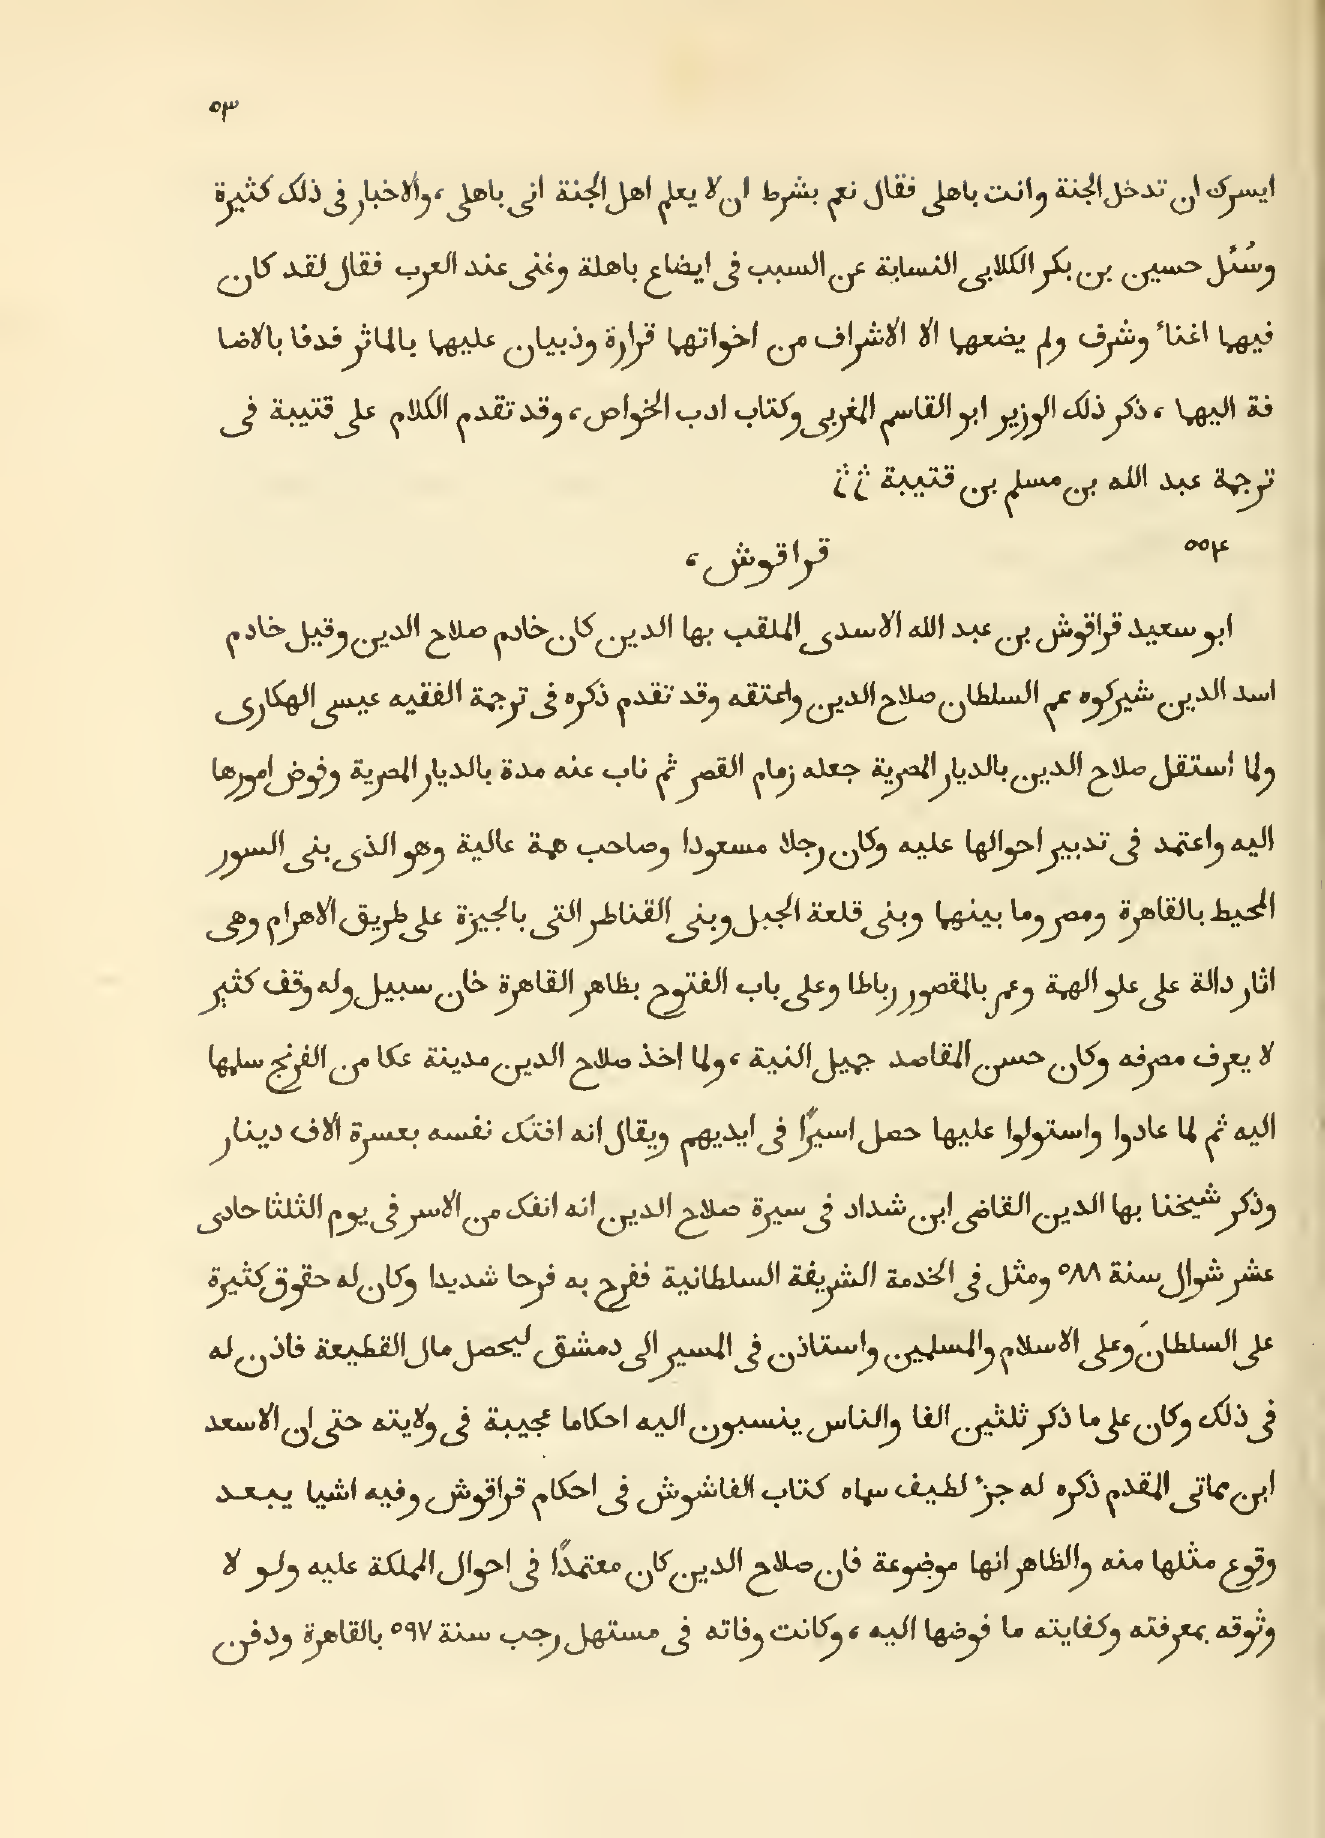 ٥٣
ايسرك ان تدخل الجنة وانت باهلى فقال نعم بشرط ان لا يعلم اهل الجنة انى باهلى ، والاخبار فى ذلك كثيرة
وسُئل حسين بن بكر الكلابى النسابة عن السبب فى ايضاع باهلة وغنى عند العرب فقال لقد كان
فيهما اغناء وشرف ولم يضعهما الا الاشراف من اخواتهما قرارة وذبيان عليهما بالماثر فدفا بالاضا
فة اليهما ، ذكر ذلك الوزير ابو القاسم المغربى وكتاب ادب الخواص ، وقد تقدم الكلام على قتيبة فى
ترجمة عبد الله بن مسلم بن قتيبة
٥٥٤
قراقوش ،
ابو سعيد قراقوش بن عبد الله الاسدى الملقب بها الدين كان خادم صلاح الدين وقيل خادم
اسد الدين شيركوه عم السلطان صلاح الدين واعتقه وقد تقدم ذكره فى ترجمة الفقيه عيسى الهكارى
ولما استقل صلاح الدين بالديار المصرية جعله زمام القصر ثم ناب عنه مدة بالديار المصرية وفوض امورها
اليه واعتمد فى تدبير احوالها عليه وكان رجلا مسعودا وصاحب همة عالية وهو الذى بنى السور
المحيط بالقاهرة ومصر وما بينهما وبنى قلعة الجبل وبنى القناطر التى بالجيزة على طريق الاهرام وهى
اثار دالة على علو الهمة وعمر بالمقصور رباطا وعلى باب الفتوح بظاهر القاهرة خان سبيل وله وقف كثير
لا يعرف مصرفه وكان حسن المقاصد جميل النية ، ولما اخذ صلاح الدين مدينة عكا من الفرنج سلمها
اليه ثم لما عادوا واستولوا عليها حصل اسيرًا فى ايديهم ويقال انه افتك نفسه بعسرة الاف دينار
وذكر شيخنا بها الدين القاضى ابن شداد فى سيرة صلاح الدين انه انفك من الاسر فى يوم الثلثا حادى
عشر شوال سنة ٥٨٨ ومثل فى الخدمة الشريفة السلطانية ففرح به فرحا شديدا وكان له حقوق كثيرة
على السلطان وعلى الاسلام والمسلمين واستاذن فى المسير الى دمشق ليحصل مال القطيعة فاذن له
فى ذلك وكان على ما ذكر ثلثين الفا والناس ينسبون اليه احكاما عجيبة فى ولايته حتى ان الاسعد
ابن مماتى المقدم ذكره له جزء لطيف سماه كتاب الفاشوش فى احكام قراقوش وفيه اشيا يبعد
وقوع مثلها منه والظاهر انها موضوعة فان صلاح الدين كان معتمدًا فى احوال المملكة عليه ولو لا
وثوقه بمعرفته وكفايته ما فوضها اليه ، وكانت وفاته فى مستهل رجب سنة ٥٩٧ بالقاهرة ودفن